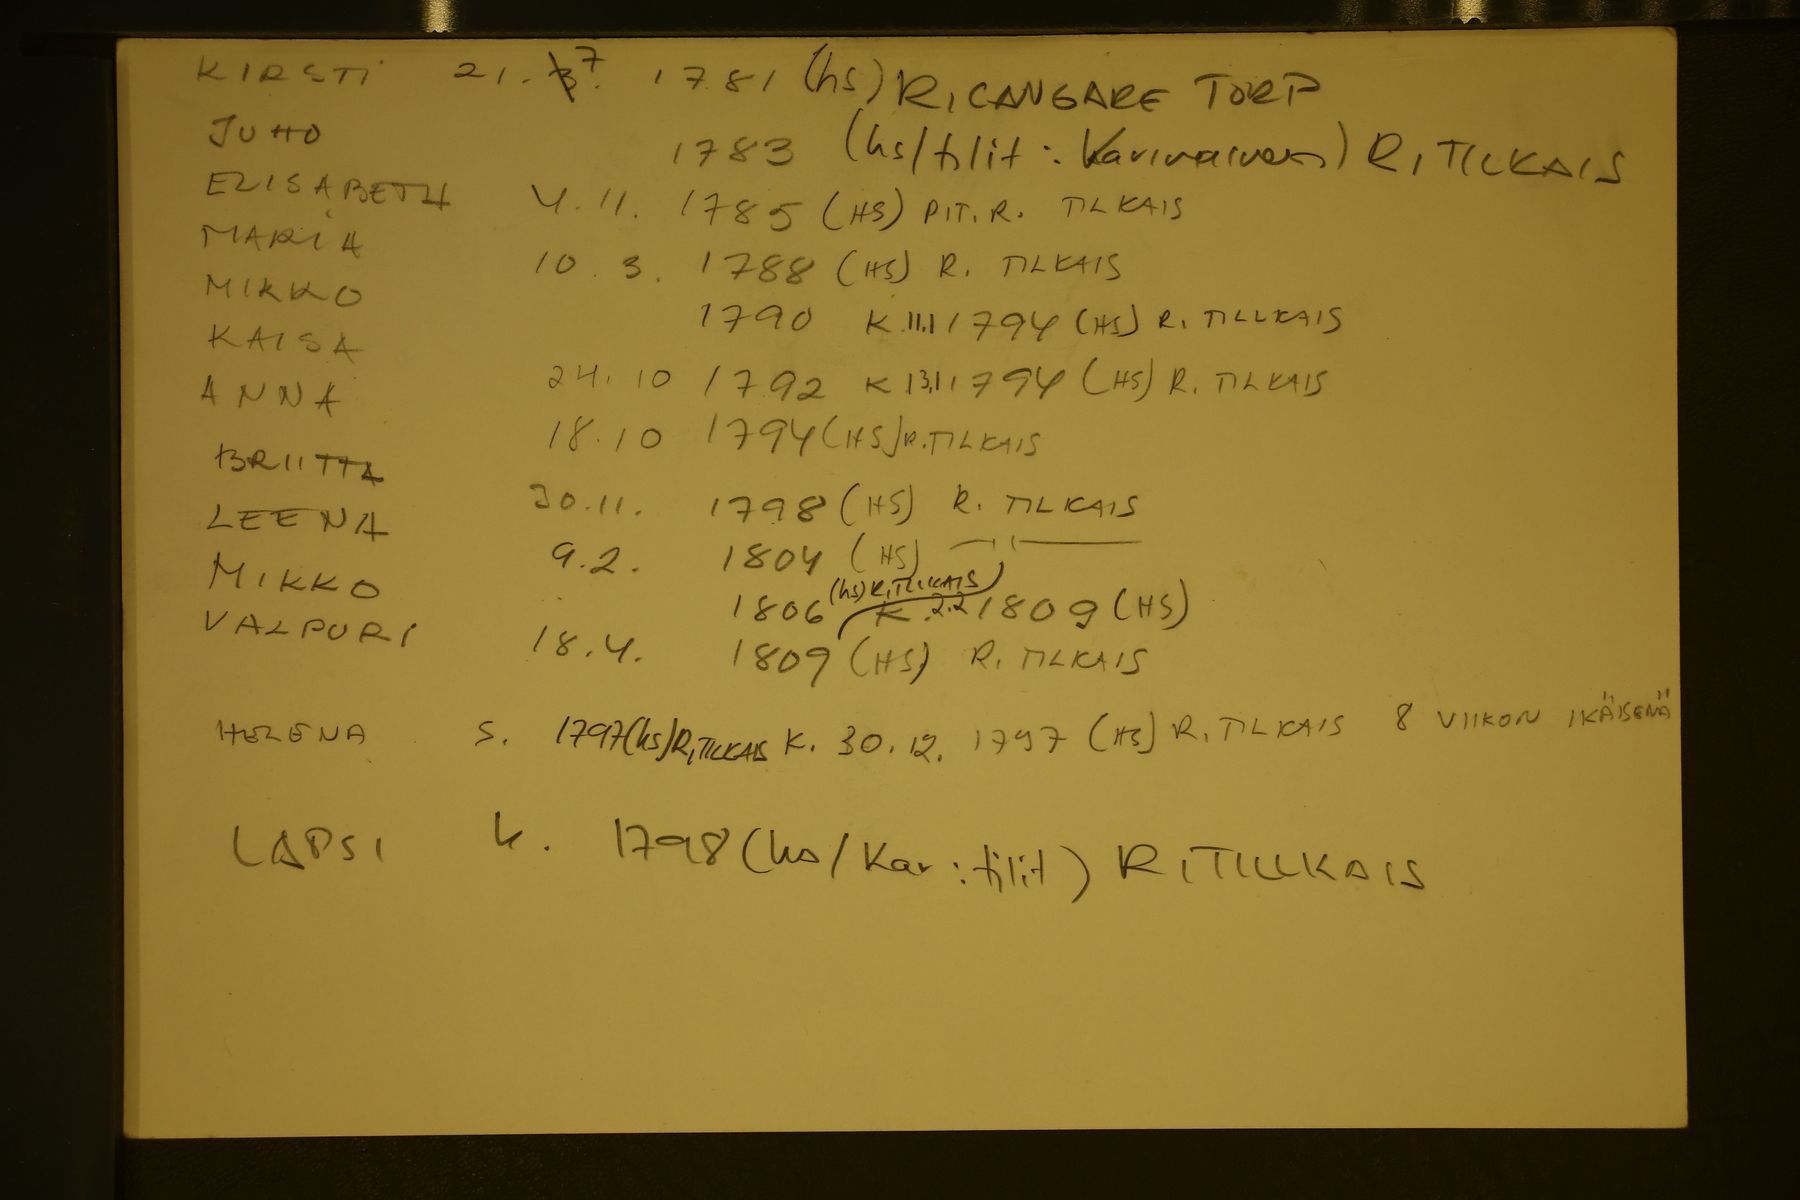 KIRSTI 21. 7. 1781 (hs) R, CANGARE TORP
JUHO 1783 (hs/tilit: Karinainen) R, TILKAIS
ELISABETH 4.11. 1785 (HS) PIT. R. TILKAIS
MARIA 10. 3. 1788 (HS) R. TILKAIS
MIKKO 1790 K 11.1 1794 (HS) R. TILLKAIS
KAISA 24. 10 1792 K 13.1 1794 (HS) R. TILKAIS
ANNA 18.10 1794 (HS) R. TILKAIS
BRIITTA 30.11. 1798 (HS) R. TILKAIS
LEENA 9.2. 1804 (HS) — " —
MIKKO 1806 (hs) R, TILLKAIS K. 2.2 1809 (HS)
VALPURI 18.4. 1809 (HS) R. TILKAIS
HELENA S. 1797 (hs) R, TILLKAIS K. 30. 12. 1797 (HS) R, TILKAIS 8 VIIKON IKÄISENÄ
LAPSI k. 1798 (hs/Kar: tilit) R, TILLKAIS